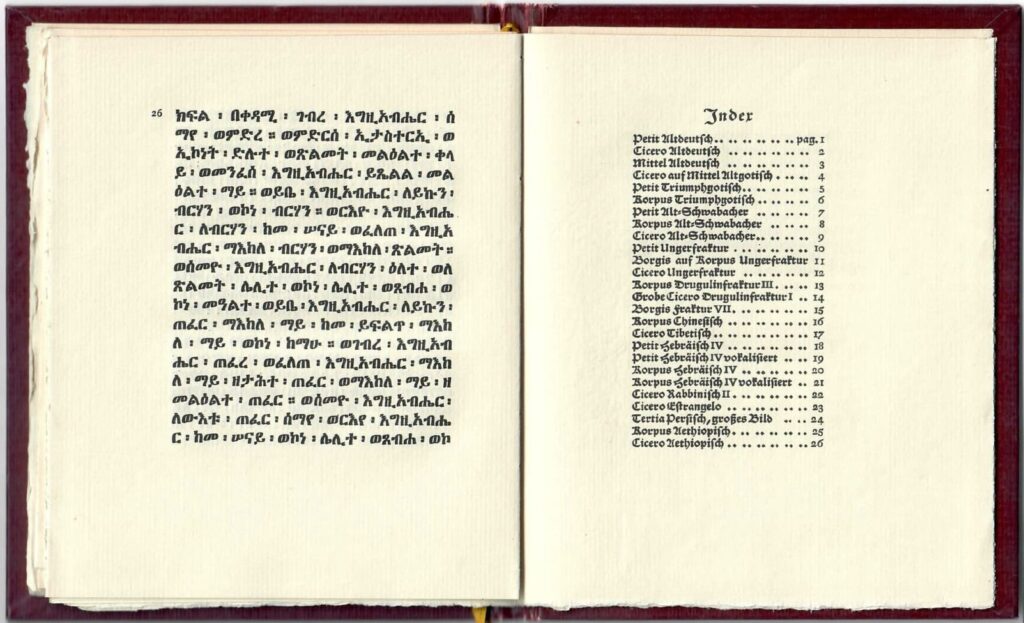 26 ክፍል ፡ በቀዳሚ ፡ ገብረ ፡ እግዚአብሔር ፡ ሰ
ማየ ፡ ወምድረ ። ወምድርሰ ፡ ኢታስተርኢ ፡ ወ
ኢኮነት ፡ ድሉተ ፡ ወጽልመት ፡ መልዕልተ ፡ ቀላ
ይ ፡ ወመንፈሰ ፡ እግዚአብሔር ፡ ይጼልል ፡ መል
ዕልተ ፡ ማይ ። ወይቤ ፡ እግዚአብሔር ፡ ለይኩን ፡
ብርሃን ፡ ወኮነ ፡ ብርሃን ። ወርእዮ ፡ እግዚአብሔ
ር ፡ ለብርሃን ፡ ከመ ፡ ሠናይ ፡ ወፈለጠ ፡ እግዚአ
ብሔር ፡ ማእከለ ፡ ብርሃን ፡ ወማእከለ ፡ ጽልመት ።
ወሰመዮ ፡ እግዚአብሔር ፡ ለብርሃን ፡ ዕለተ ፡ ወለ
ጽልመት ፡ ሌሊተ ፡ ወኮነ ፡ ሌሊተ ፡ ወጸብሐ ፡ ወ
ኮነ ፡ መዓልተ ፡ ወይቤ ፡ እግዚአብሔር ፡ ለይኩን ፡
ጠፈር ፡ ማእከለ ፡ ማይ ፡ ከመ ፡ ይፍልጥ ፡ ማእከ
ለ ፡ ማይ ፡ ወኮነ ፡ ከማሁ ። ወገብረ ፡ እግዚአብ
ሔር ፡ ጠፈረ ፡ ወፈለጠ ፡ እግዚአብሔር ፡ ማእከ
ለ ፡ ማይ ፡ ዘታሕተ ፡ ጠፈር ፡ ወማእከለ ፡ ማይ ፡ ዘ
መልዕልተ ፡ ጠፈር ። ወሰመዮ ፡ እግዚአብሔር ፡
ለውእቱ ፡ ጠፈር ፡ ሰማየ ፡ ወርእዮ ፡ እግዚአብሔ
ር ፡ ከመ ፡ ሠናይ ፡ ወኮነ ፡ ሌሊተ ፡ ወጸብሐ ፡ ወኮ
Index
Petit Altdeutsch . . . . . . . . pag. 1
Cicero Altdeutsch . . . . . . . . 2
Mittel Altdeutsch . . . . . . . . 3
Cicero auf Mittel Altgotisch . . . . 4
Petit Triumphgotisch . . . . . . . 5
Korpus Triumphgotisch . . . . . . 6
Petit Alt-Schwabacher . . . . . . 7
Korpus Alt-Schwabacher . . . . . 8
Cicero Alt-Schwabacher . . . . . . 9
Petit Ungerfraktur . . . . . . . . 10
Borgis auf Korpus Ungerfraktur 11
Cicero Ungerfraktur . . . . . . . 12
Korpus Drugulinfraktur III . . . . 13
Grobe Cicero Drugulinfraktur I . . 14
Borgis Fraktur VII . . . . . . . . 15
Korpus Chinesisch . . . . . . . . 16
Cicero Tibetisch . . . . . . . . . 17
Petit Hebräisch IV . . . . . . . . 18
Petit Hebräisch IV vokalisiert . . 19
Korpus Hebräisch IV . . . . . . . 20
Korpus Hebräisch IV vokalisiert . . 21
Cicero Rabbinisch II . . . . . . . 22
Cicero Estrangelo . . . . . . . . 23
Tertia Persisch, großes Bild . . . 24
Korpus Aethiopisch . . . . . . . . 25
Cicero Aethiopisch . . . . . . . . 26